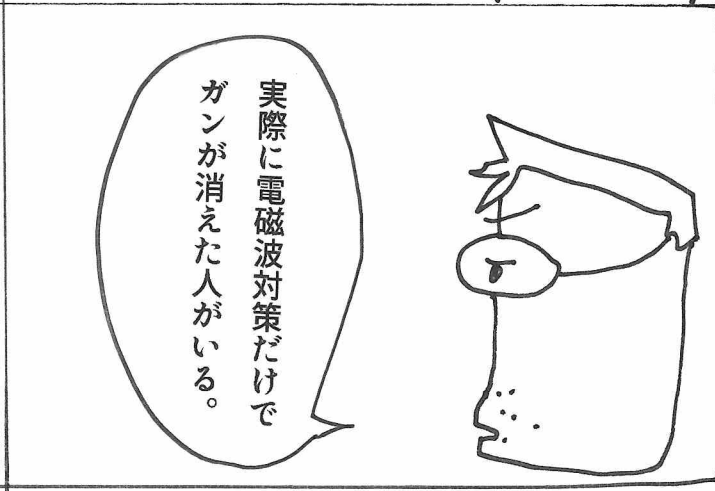 実際に電磁波対策だけで
ガンが消えた人がいる。